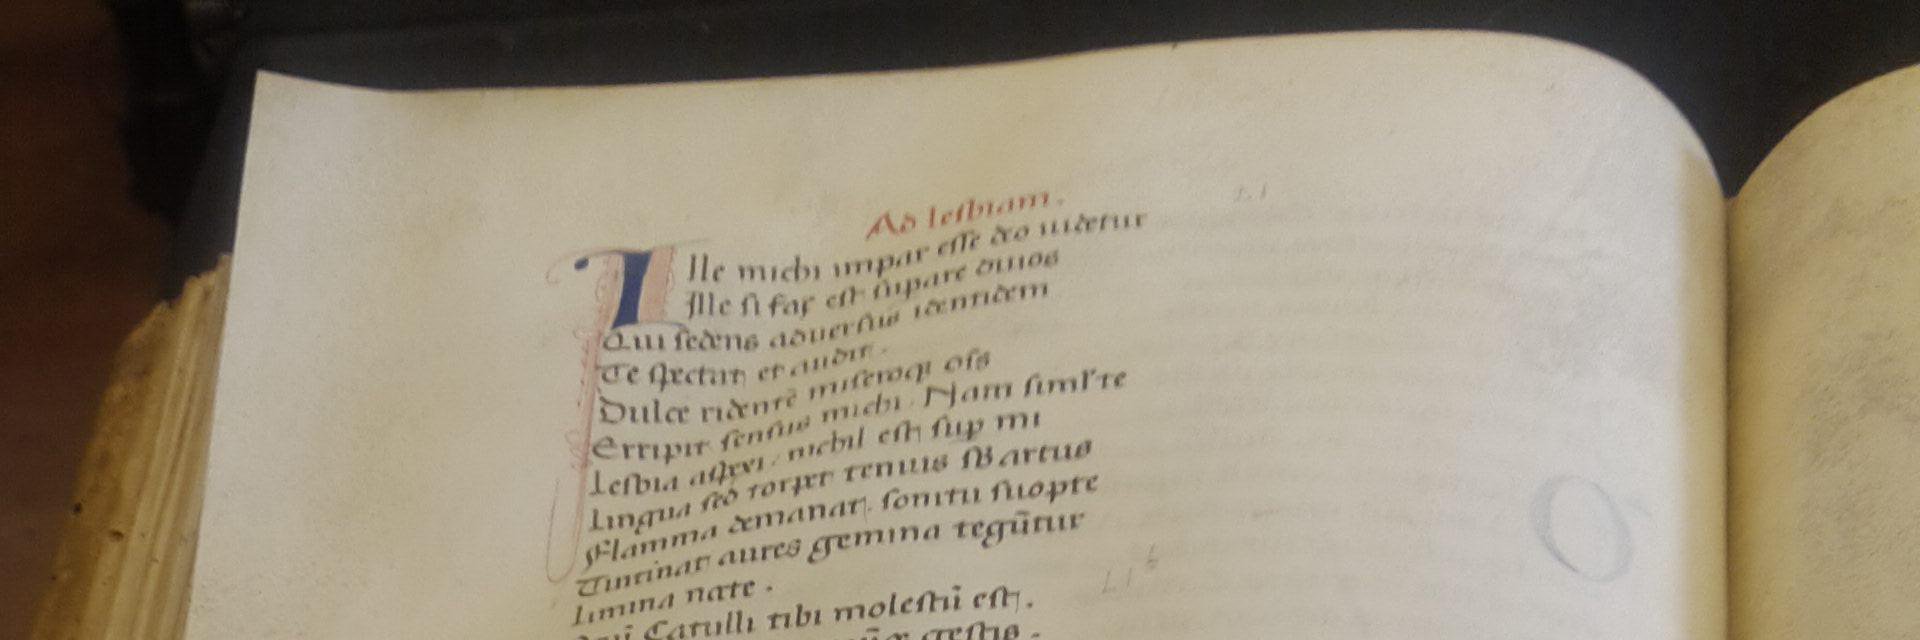 Ad lesbiam.
LI
Ille michi impar esse deo uidetur
Ille si fas est supare diuos
Qui sedens aduersus identidem
Te spectat et audit.
Dulce ridentē miseroqȝ oīs
Erripit sensus michi. Nam siml' te
Lesbia aspexi. nichil est sup mi
Lingua sed torpet tenuis sb artus
Flamma demanat. sonitu suopte
Tintinat aures gemina tegūtur
LIᵃ
limina nocte.
Catulli tibi molestū est.
gestis.